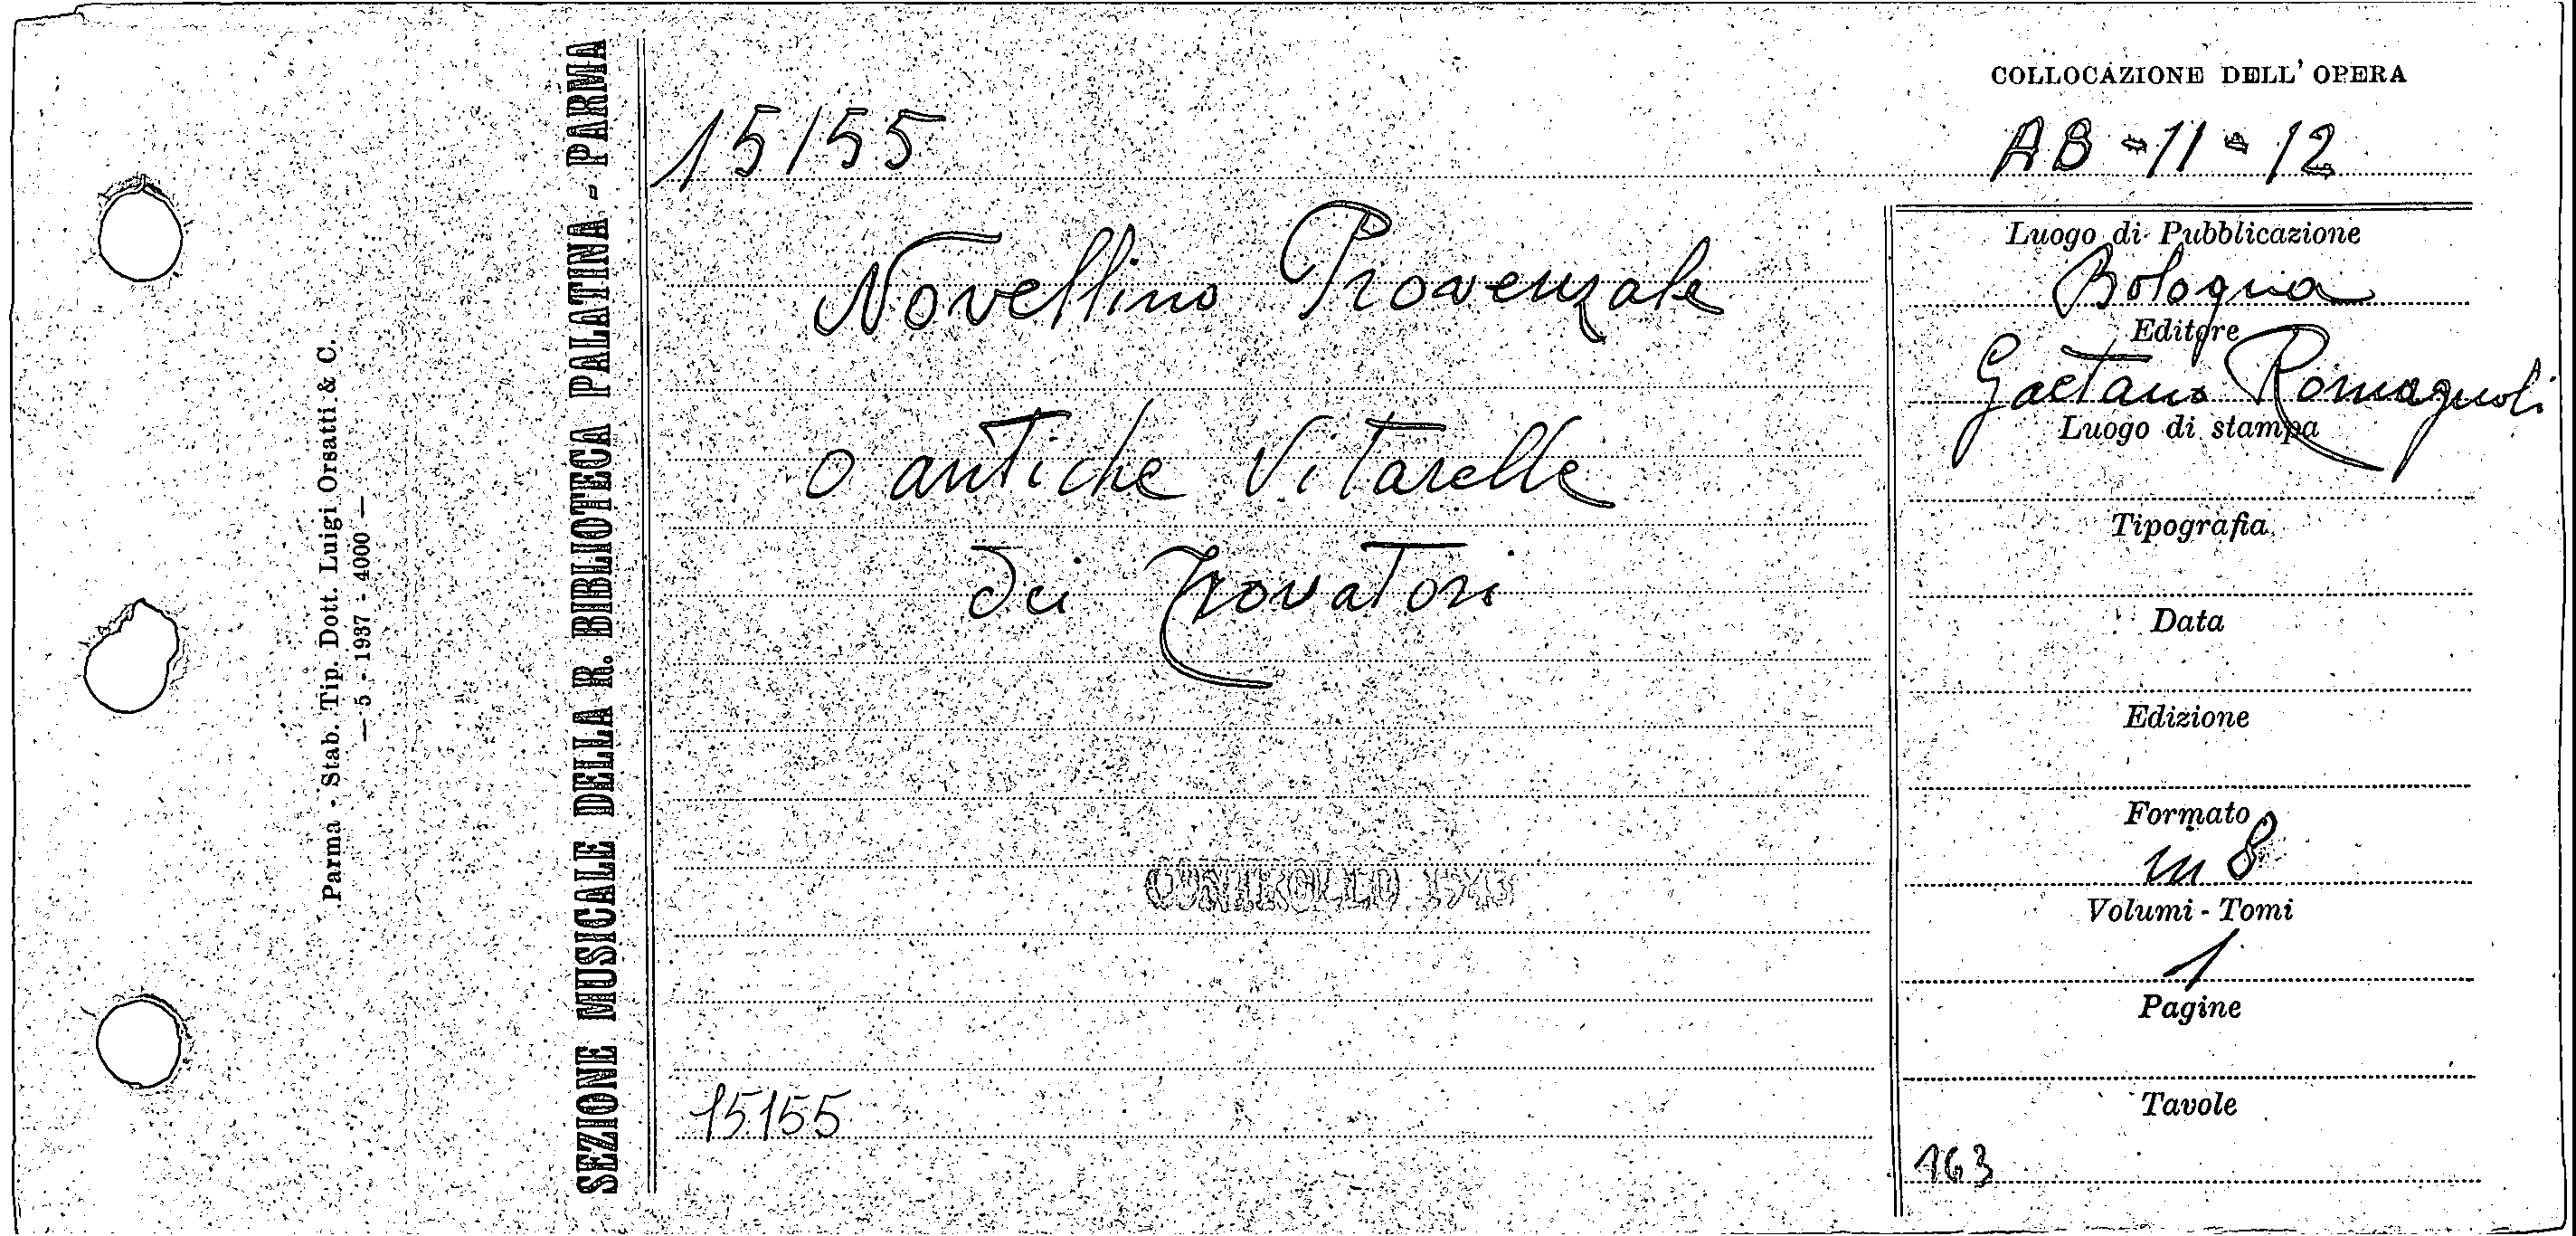 Parma - Stab. Tip. Dott. Luigi Orsatti & C.
— 5 - 1937 - 4000 —
SEZIONE MUSICALE DELLA R. BIBLIOTECA PALATINA - PARMA
15155
Novellino Provenzale
o antiche Vitarelle
dei Trovatori
CONTROLLO 1943
15155
COLLOCAZIONE DELL' OPERA
AB - 11 - 12
Luogo di Pubblicazione
Bologna
Editore
Gaetano Romagnoli
Luogo di stampa
Tipografia
Data
Edizione
Formato
in 8
Volumi - Tomi
1
Pagine
Tavole
163